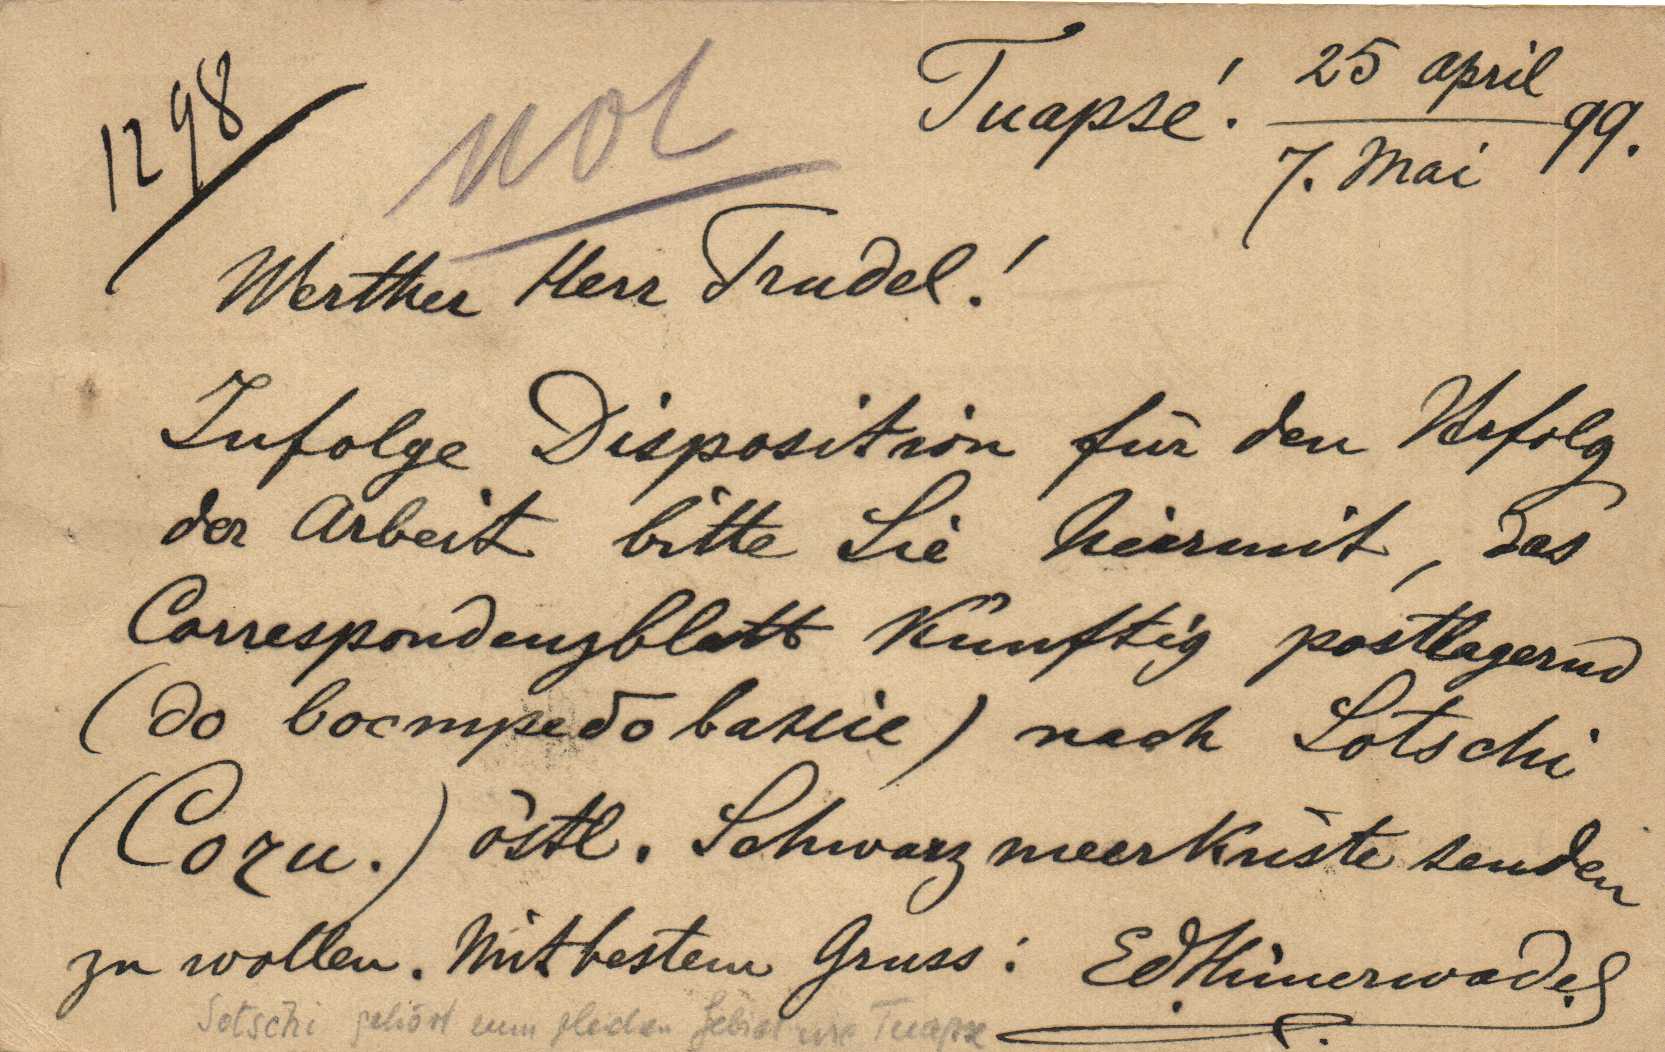 1298
Tuapsé! 25 April
7. Mai 99.
Werther Herr Trudel!
Infolge Disposition für den Erfolg
der Arbeit bitte Sie hiermit, das
Correspondenzblatt künftig postlagernd
(до востребованiе) nach Sotschi
(Сочи.) östl. Schwarzmeerküste senden
zu wollen. Mit bestem Gruss: Ed. Hünerwadel
Sotschi gehört zum gleichen Gebiet wie Tuapse